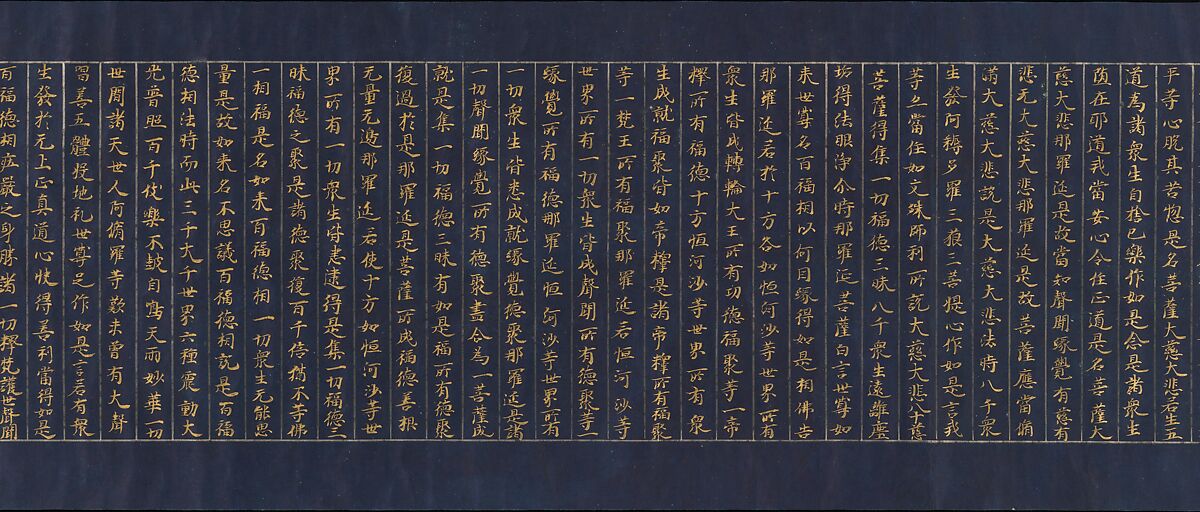 平等心脫其苦惱是名菩薩大慈大悲若生五
道為諸衆生自捨已樂作如是念是諸衆生
墮在邪道我當安心令住正道是名菩薩大
慈大悲那羅延是故當知聲聞緣覺有慈有
悲无大慈大悲那羅延是故菩薩應當俻
滿大慈大悲說是大慈大悲法時八千衆
生發阿耨多羅三藐三菩提心作如是言我
等亦當住如文殊師利所說大慈大悲八十慈
菩薩得集一切福德三昧八千衆生遠離塵
垢得法眼淨尒時那羅延菩薩白言世尊如
来世尊名百福相以何因緣得如是相佛告
那羅延若於十方各如恒河沙等世界所有
衆生皆成轉輪大王所有功德福聚等一帝
釋所有福德十方恒河沙等世界所有衆
生成就福聚皆如帝釋是諸帝釋所有福聚
等一梵王所有福聚那羅延若恒河沙等
世界所有一切衆生皆成聲聞所有德聚等一
緣覺所有福德那羅延恒河沙等世界所有
一切衆生皆悉成就緣覺德聚那羅延是諸
一切聲聞緣覺所有德聚書合為一菩薩成
就是集一切福德三昧有如是福所有德聚
復過於是那羅延是菩薩所成福德善根
无量无邊那羅延若使十方如恒河沙等世
界所有一切衆生皆悉逮得是集一切福德三
昧福德之聚是諸德聚復百千倍猶不等佛
一相福是名如来百福德相一切衆生无能思
量是故如来名不思議百福德相說是百福
德相法時而此三千大千世界六種震動大
光普照百千伎樂不皷自鳴天雨妙華一切
世間諸天世人阿脩羅等歎未曾有大聲
唱善五體投地礼世尊足作如是言若有衆
生發於无上正真道心快得善利當得如是
百福德相莊嚴之身勝諸一切釋梵護世聲聞